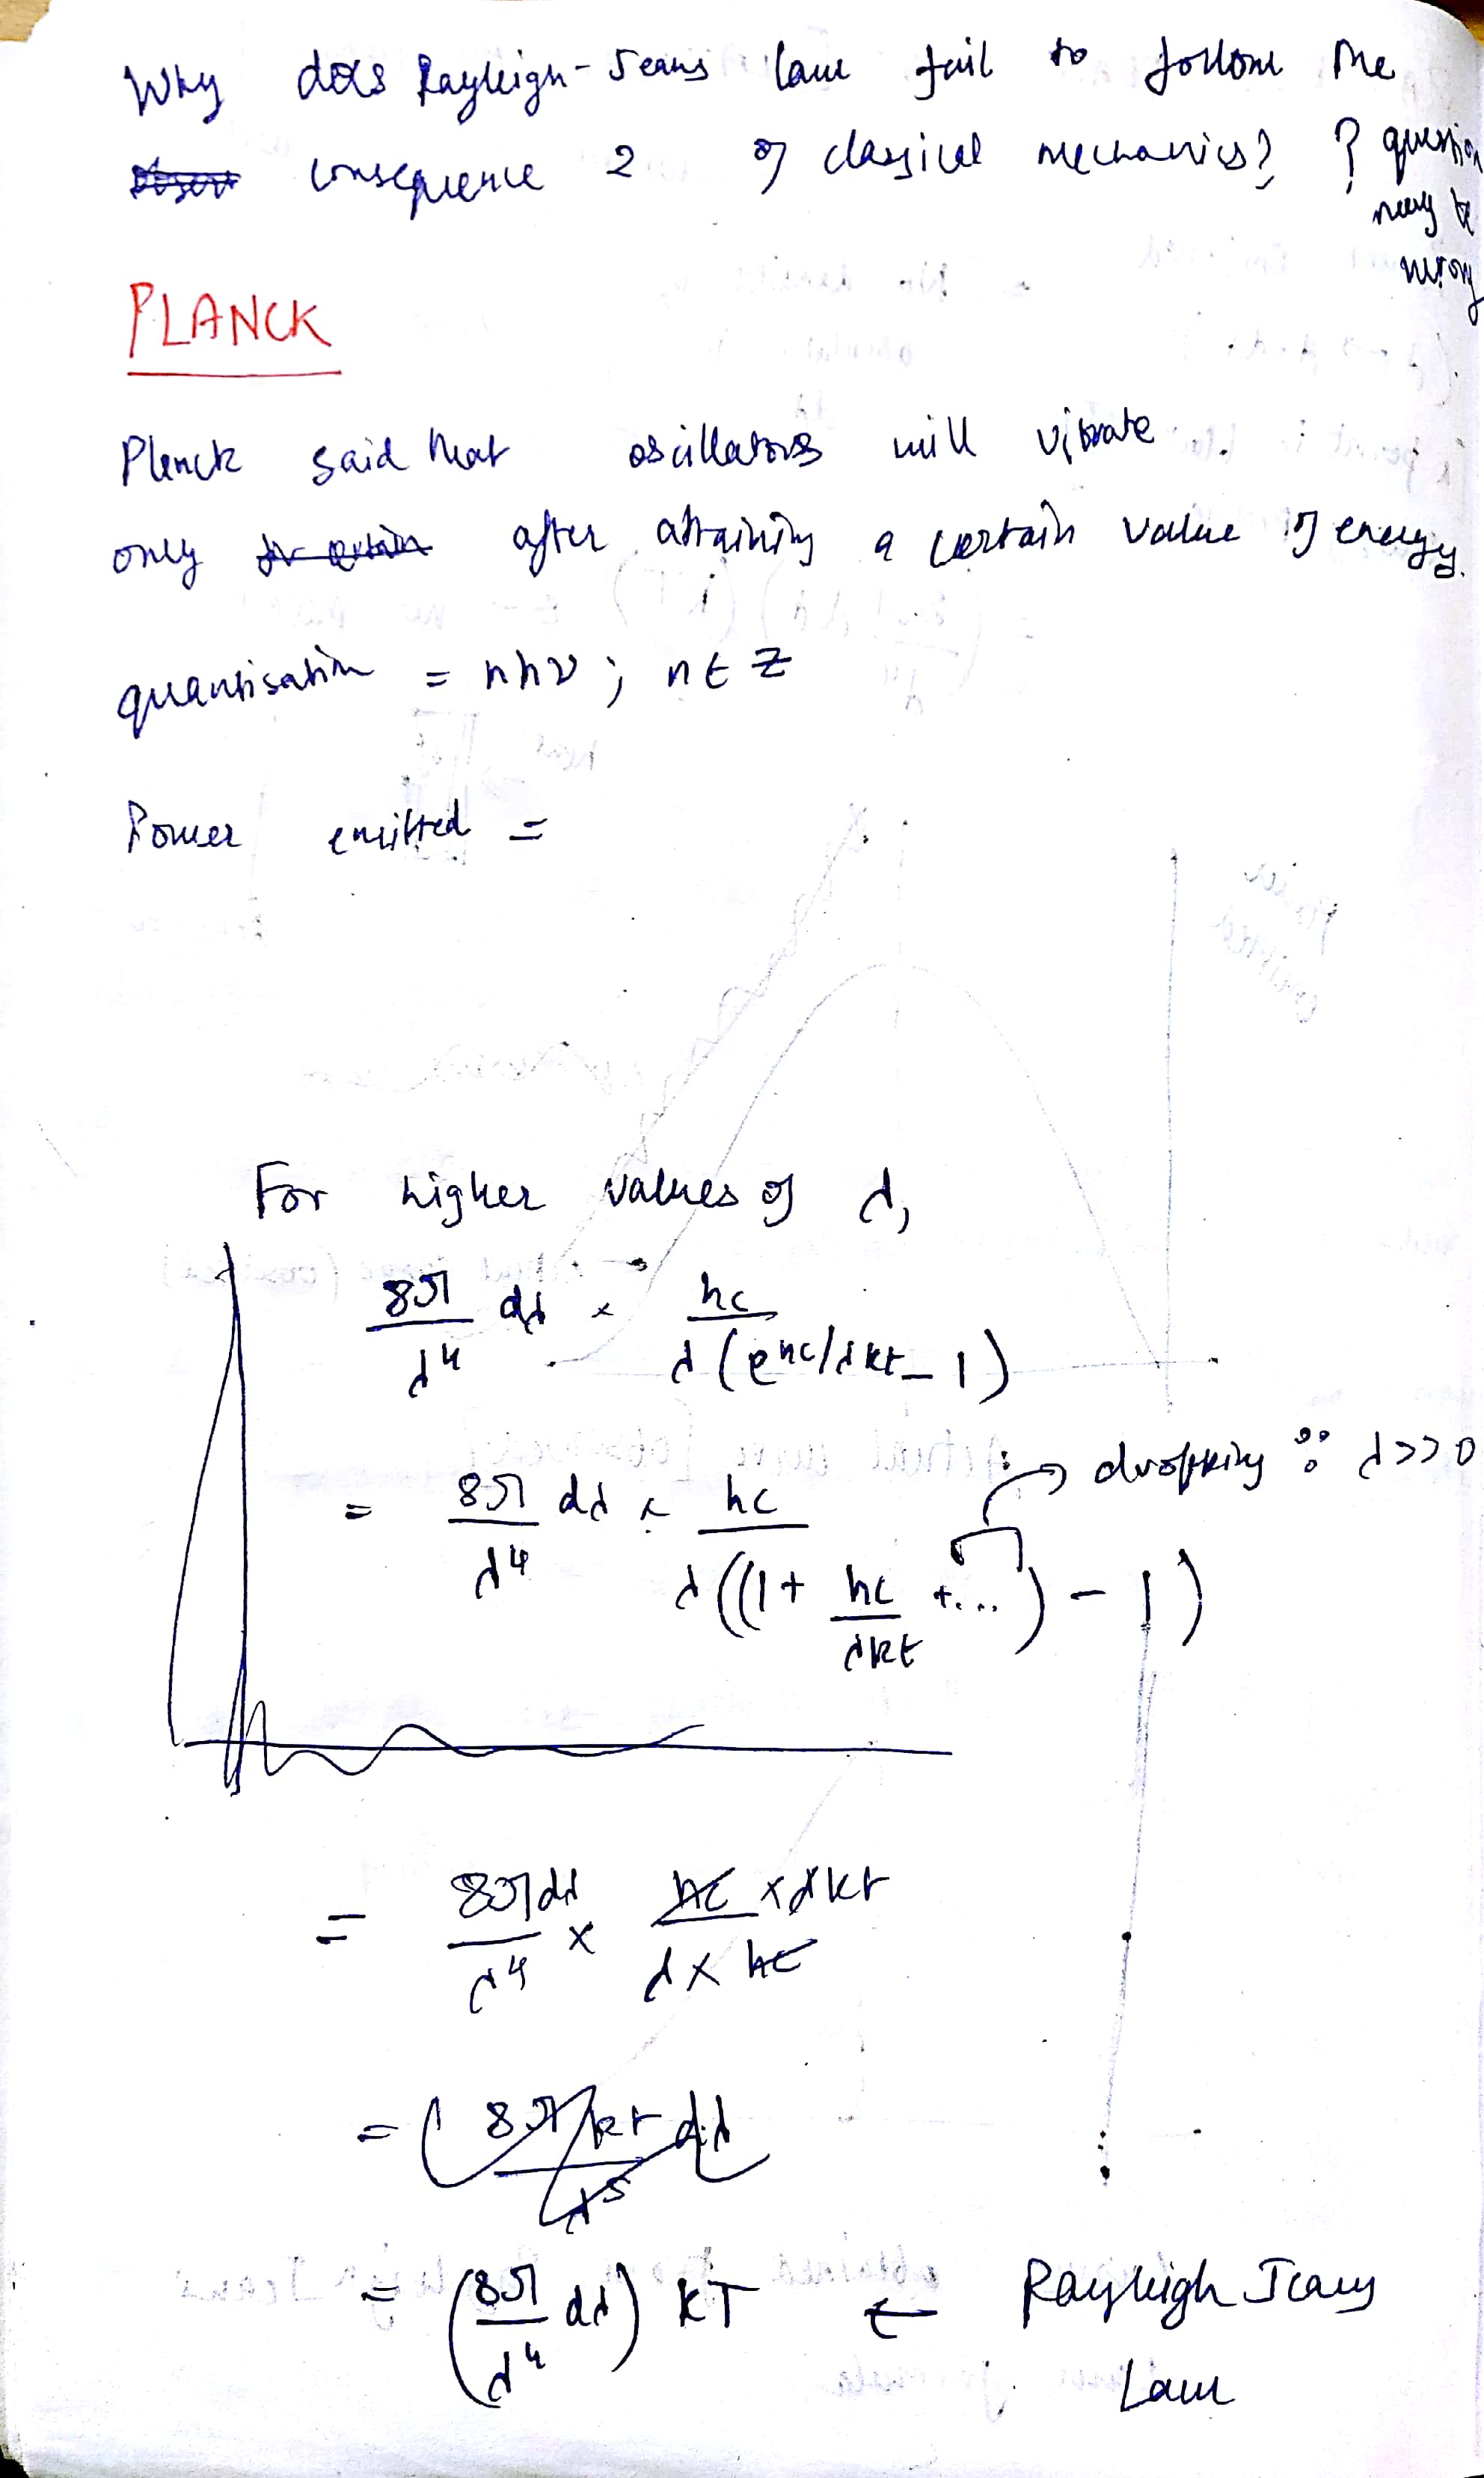 Why does Rayleigh-Jeans law fail to follow the
consequence 2 of classical mechanics? ? question
may be
wrong
PLANCK
Planck said that oscillators will vibrate
only for certain after attaining a certain value of energy.
quantisation = nhν ; n ∈ Z
Power emitted =
For higher values of λ,
8π/λ⁴ dλ × hc/λ(e^hc/λkt - 1)
= 8π/λ⁴ dλ × hc/λ((1 + hc/λkt + ...) - 1) → dropping ∵ λ>>0
= 8πdλ/λ⁴ × hc × λkt/λ × hc
= (8π kt dλ/λ⁵
= (8π/λ⁴ dλ) kT ← Rayleigh Jeans
Law